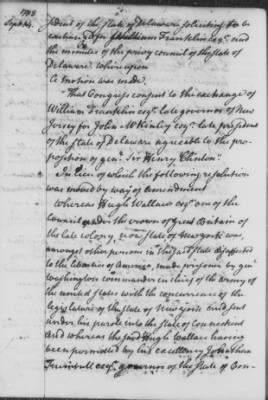 1778
Sept. 14.
sident of the state of Delaware soliciting to be
exchanged for William Franklin esqr. and
the minutes of the privy council of the state of
Delaware, whereupon
A motion was made
That Congress consent to the exchange of
William Franklin esqr. late governor of New
Jersey for John McKinly esqr. late president
of the state of Delaware agreeable to the pro-
position of genl. Sir Henry Clinton.
In lieu of which the following resolution
was moved by way of amendment
Whereas Hugh Wallace esqr. one of the
Council under the crown of Great Britain of
the late colony, now state of New york was,
amongst other persons in the last state disaffected
to the liberties of America, made prisoner by genl
Washington commander in chief of the army of
the united states with the concurrence of the
legislature of the state of New york and sent
under his parole into the state of Connecticut
and whereas the said Hugh Wallace having
been permitted by his excellency Jonathan
Trumbull esqr. governor of the state of Con-